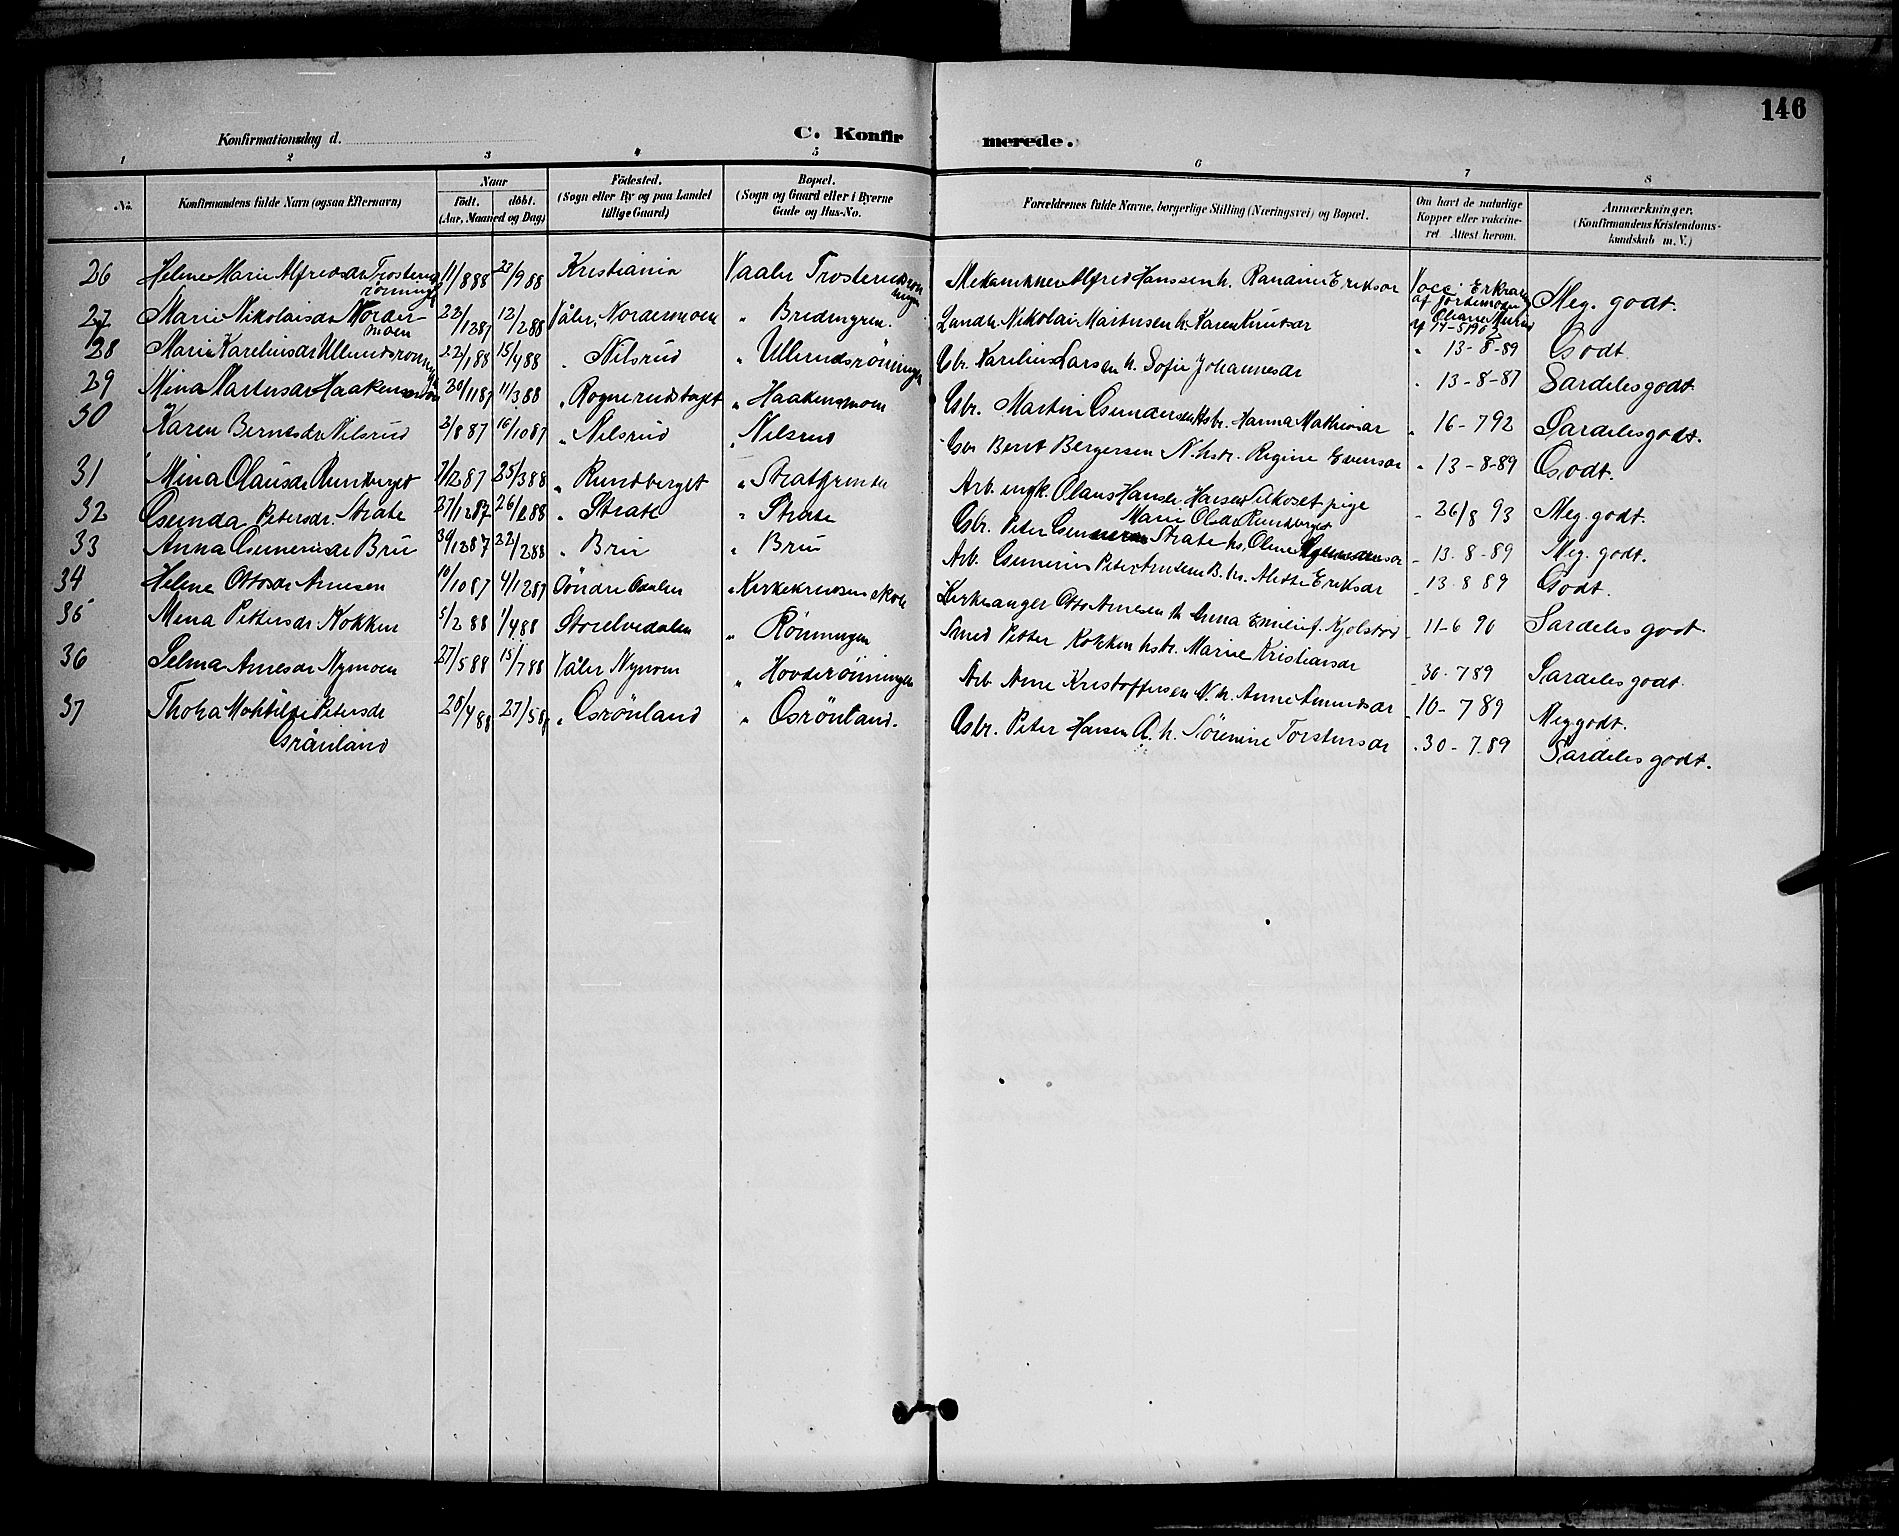 146
Konfirmationsdag d.
C. Konfirmerede.
1 2 3 4 5 6 7 8
No.
Konfirmandens fulde Navn (ogsaa Efternavn)
Naar
födt. döbt.
(Aar, Maaned og Dag)
Födested.
(Sogn eller By og paa Landet
tillige Gaard)
Bopæl.
(Sogn og Gaard eller i Byerne
Gade og Hus-No.
Forældrenes fulde Navne, borgerlige Stilling (Næringsvei) og Bopæl.
Om havt de naturlige
Kopper eller vakcine-
ret. Attest herom.
Anmærkninger.
(Konfirmandens Kristendoms-
kundskab m. V.)
26 Helene Marie Alfredsdr Trosterud
rönningen 11/8 88 23/9 88 Kristiania Vaaler Trosterudrön
ningen Mekanikker Alfred Hanssen h. Randine Eriksdr Vacc. Erklæring
af Jordemoder
Oliane Mu
af 14-5 1903 Meg. godt.
27 Marie Nikolaisdr Norder
moen 22/12 87 12/2 88 Våler, Nordermoen " Bredengren. Landh. Nikolai Martinsen h. Karen Knutsdr " 13-8-89 Godt.
28 Marie Kareliusdr Ullerudsrönningen 22/1 88 15/4 88 " Nilsrud " Ullerudsröningen Gbr. Karelius Larsen h. Sofie Johannesdr " 13-8-87 Særdeles godt
29 Mina Martinsdr Haakensmoen 20/11 87 11/3 88 " Rognerudtaget " Haakensmoen Gbr. Martin Gundersen Hstr. Hanna Mathiasdr " 16-7 92 Særdeles godt.
30 Karen Berntsdr Nilsrud 2/8 87 16/10 87 " Nilsrud " Nilsrud Gbr Bernt Bergersen N. hstr. Regine Evensdr " 13-8-89 Godt.
31 Mina Olausdr Rundberget 7/12 87 25/3 88 " Rundberget " Stratgrenden Arb. ungk. Olaus Hansen pige
Marie Olsdr Rundberget " 26/8 93 Meg. godt.
32 Gunda Petersdr. Strate 27/12 87 26/2 88 " Strate " Strate Gbr. Peder Strate hs. Oline " 13-8-89 Meg. godt.
33 Anna Gunerusdr Bru 30/12 87 22/2 88 " Bru " Bru Arb. Gunerius Peter Amdsen B. hs. Alette Eriksdr " 13 8 89 Godt.
34 Helene Ottosdr Arnesen 10/10 87 4/12 87 Söndre Osalen " Kirkekredsens skole Kirkesanger Otto Arnesen h. Anna Emilie f. Kjolstad " 11-6 90 Særdeles godt.
35 Mina Pettersdr Kokken 5/2 88 1/4 88 Storelvedalen " Rönningen Smed Petter Kokken hstr. Marie Kristiansdr " 30-7 89 Særdeles godt.
36 Selma Arnesdr Nymoen 27/5 88 15/7 88 Våler Nymoen " Hovderönningen Arb. Arne Kristoffersen N. h. Anne Amundsdr " 10-7 89 Meg godt.
37 Thora Mathilde Petersdr
Grönland 28/4 88 27/5 88 " Grönland " Grönland. Gbr. Peter Hansen h. Sörenine Torstensdr " 30-7-89 Særdeles godt.